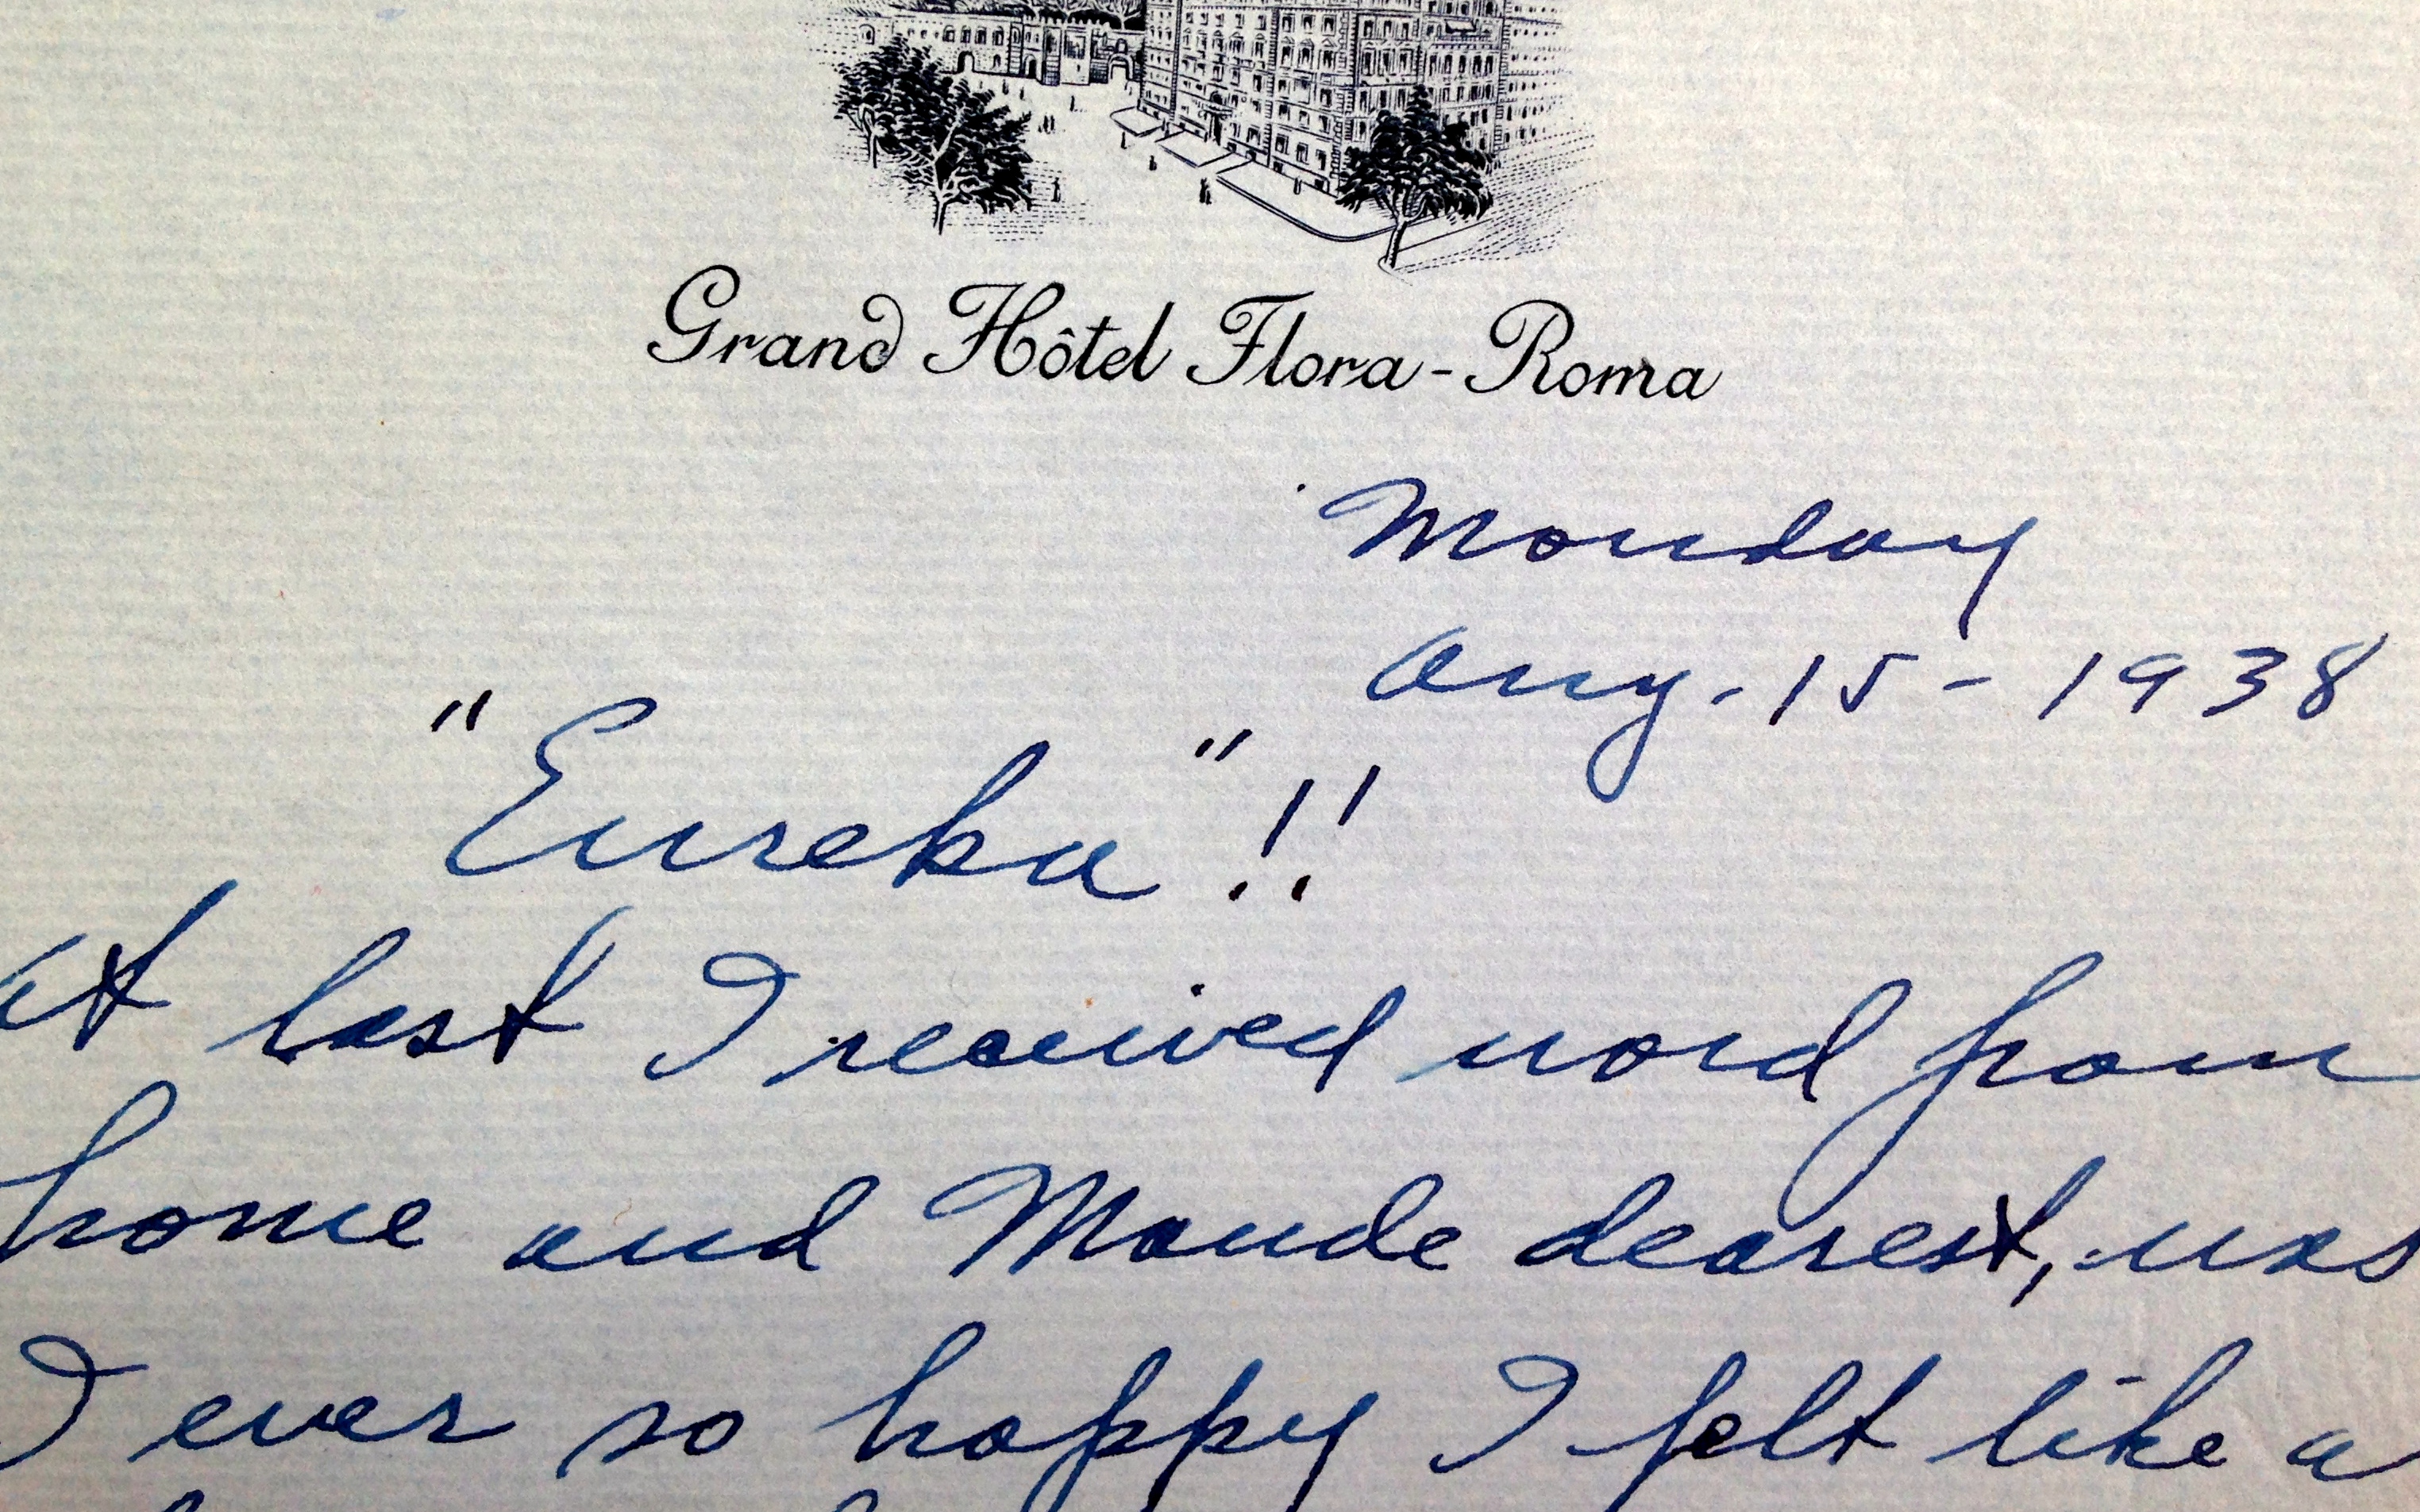 Grand Hôtel Flora-Roma
Monday
Aug. 15 - 1938
"Eureka"!!
At last I received word from
home and Maude dearest, was
I ever so happy I felt like a